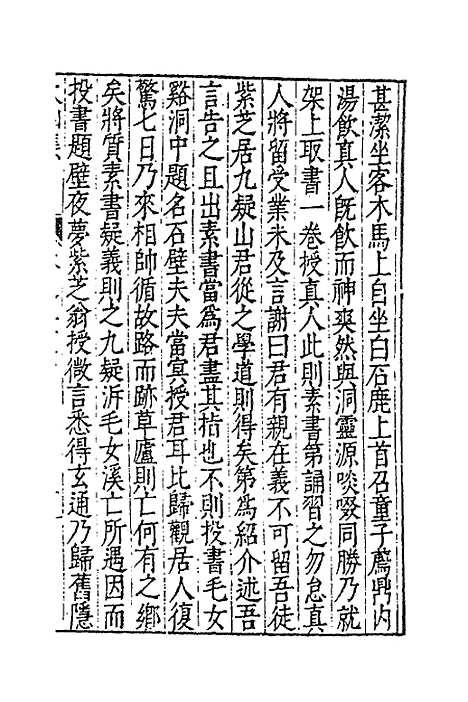 甚潔坐客木馬上自坐白石鹿上首召童子薦鼎内
湯飲真人既飲而神爽然與洞靈源啖啜同勝乃就
架上取書一卷授真人此則素書第誦習之勿怠真
人將留受業未及言謝曰君有親在義不可留吾徒
紫芝居九疑山君從之學道則得矣第為紹介述吾
言告之且出素書當為君盡其㫖也不則投書毛女
谿洞中題名石壁夫夫當宾授君耳比歸觀居人復
驚七日乃來相帥循故路而跡草廬則亡何有之鄉
矣將質素書疑義則之九疑泝毛女溪亡所遇因而
投書題壁夜夢紫芝翁授微言悉得玄通乃歸舊隱